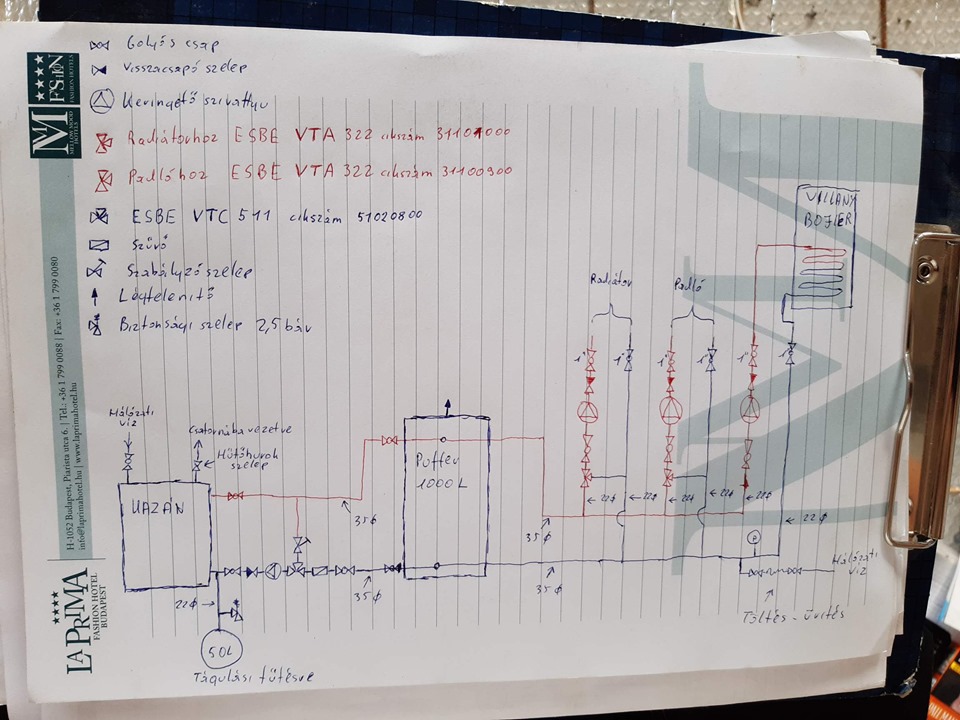 Golyós csap
Visszacsapó szelep
Keringető szivattyú
Radiátorhoz ESBE VTA 322 cikszám 31101000
Padlóhoz ESBE VTA 322 cikszám 31100900
ESBE VTC 511 cikszám 51020800
Szűrő
Szabályzószelep
Légtelenítő
Biztonsági szelep 2,5 bár
VILLANY
BOJLER
Radiátor
Padló
1"
1"
1"
1"
1"
Hálózati
víz
Csatornába vezetve
Hűtőhurok
szelep
KAZÁN
Puffer
1000 L
35ϕ
35ϕ
35ϕ
35ϕ
22ϕ
22ϕ
22ϕ
22ϕ
22ϕ
22ϕ
22ϕ
P
Hálózati
víz
Töltés - ürítés
50L
Tágulási fűtésre
M
MELLOW MOOD
HOTELS
FASHION HOTELS
H-1052 Budapest, Piarista utca 6. | Tel.: +36 1 799 0088 | Fax: +36 1 799 0080
info@laprimahotel.hu | www.laprimahotel.hu
LA PRIMA
FASHION HOTEL
BUDAPEST